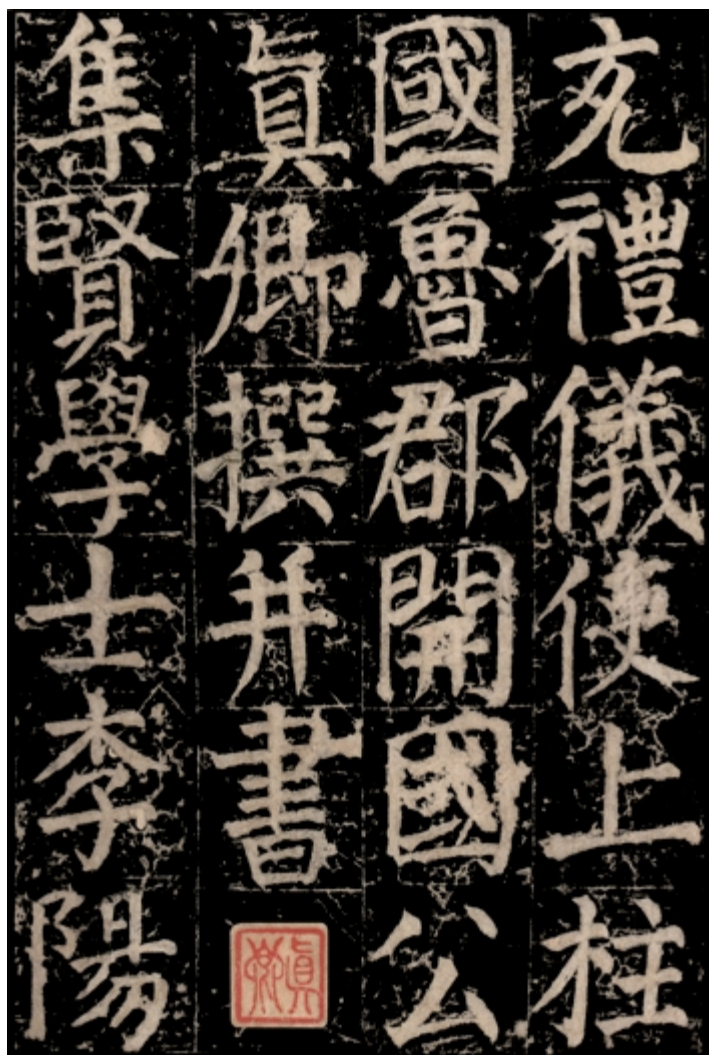 充禮儀使上柱
國魯郡開國公
眞卿撰并書
集賢學士李陽